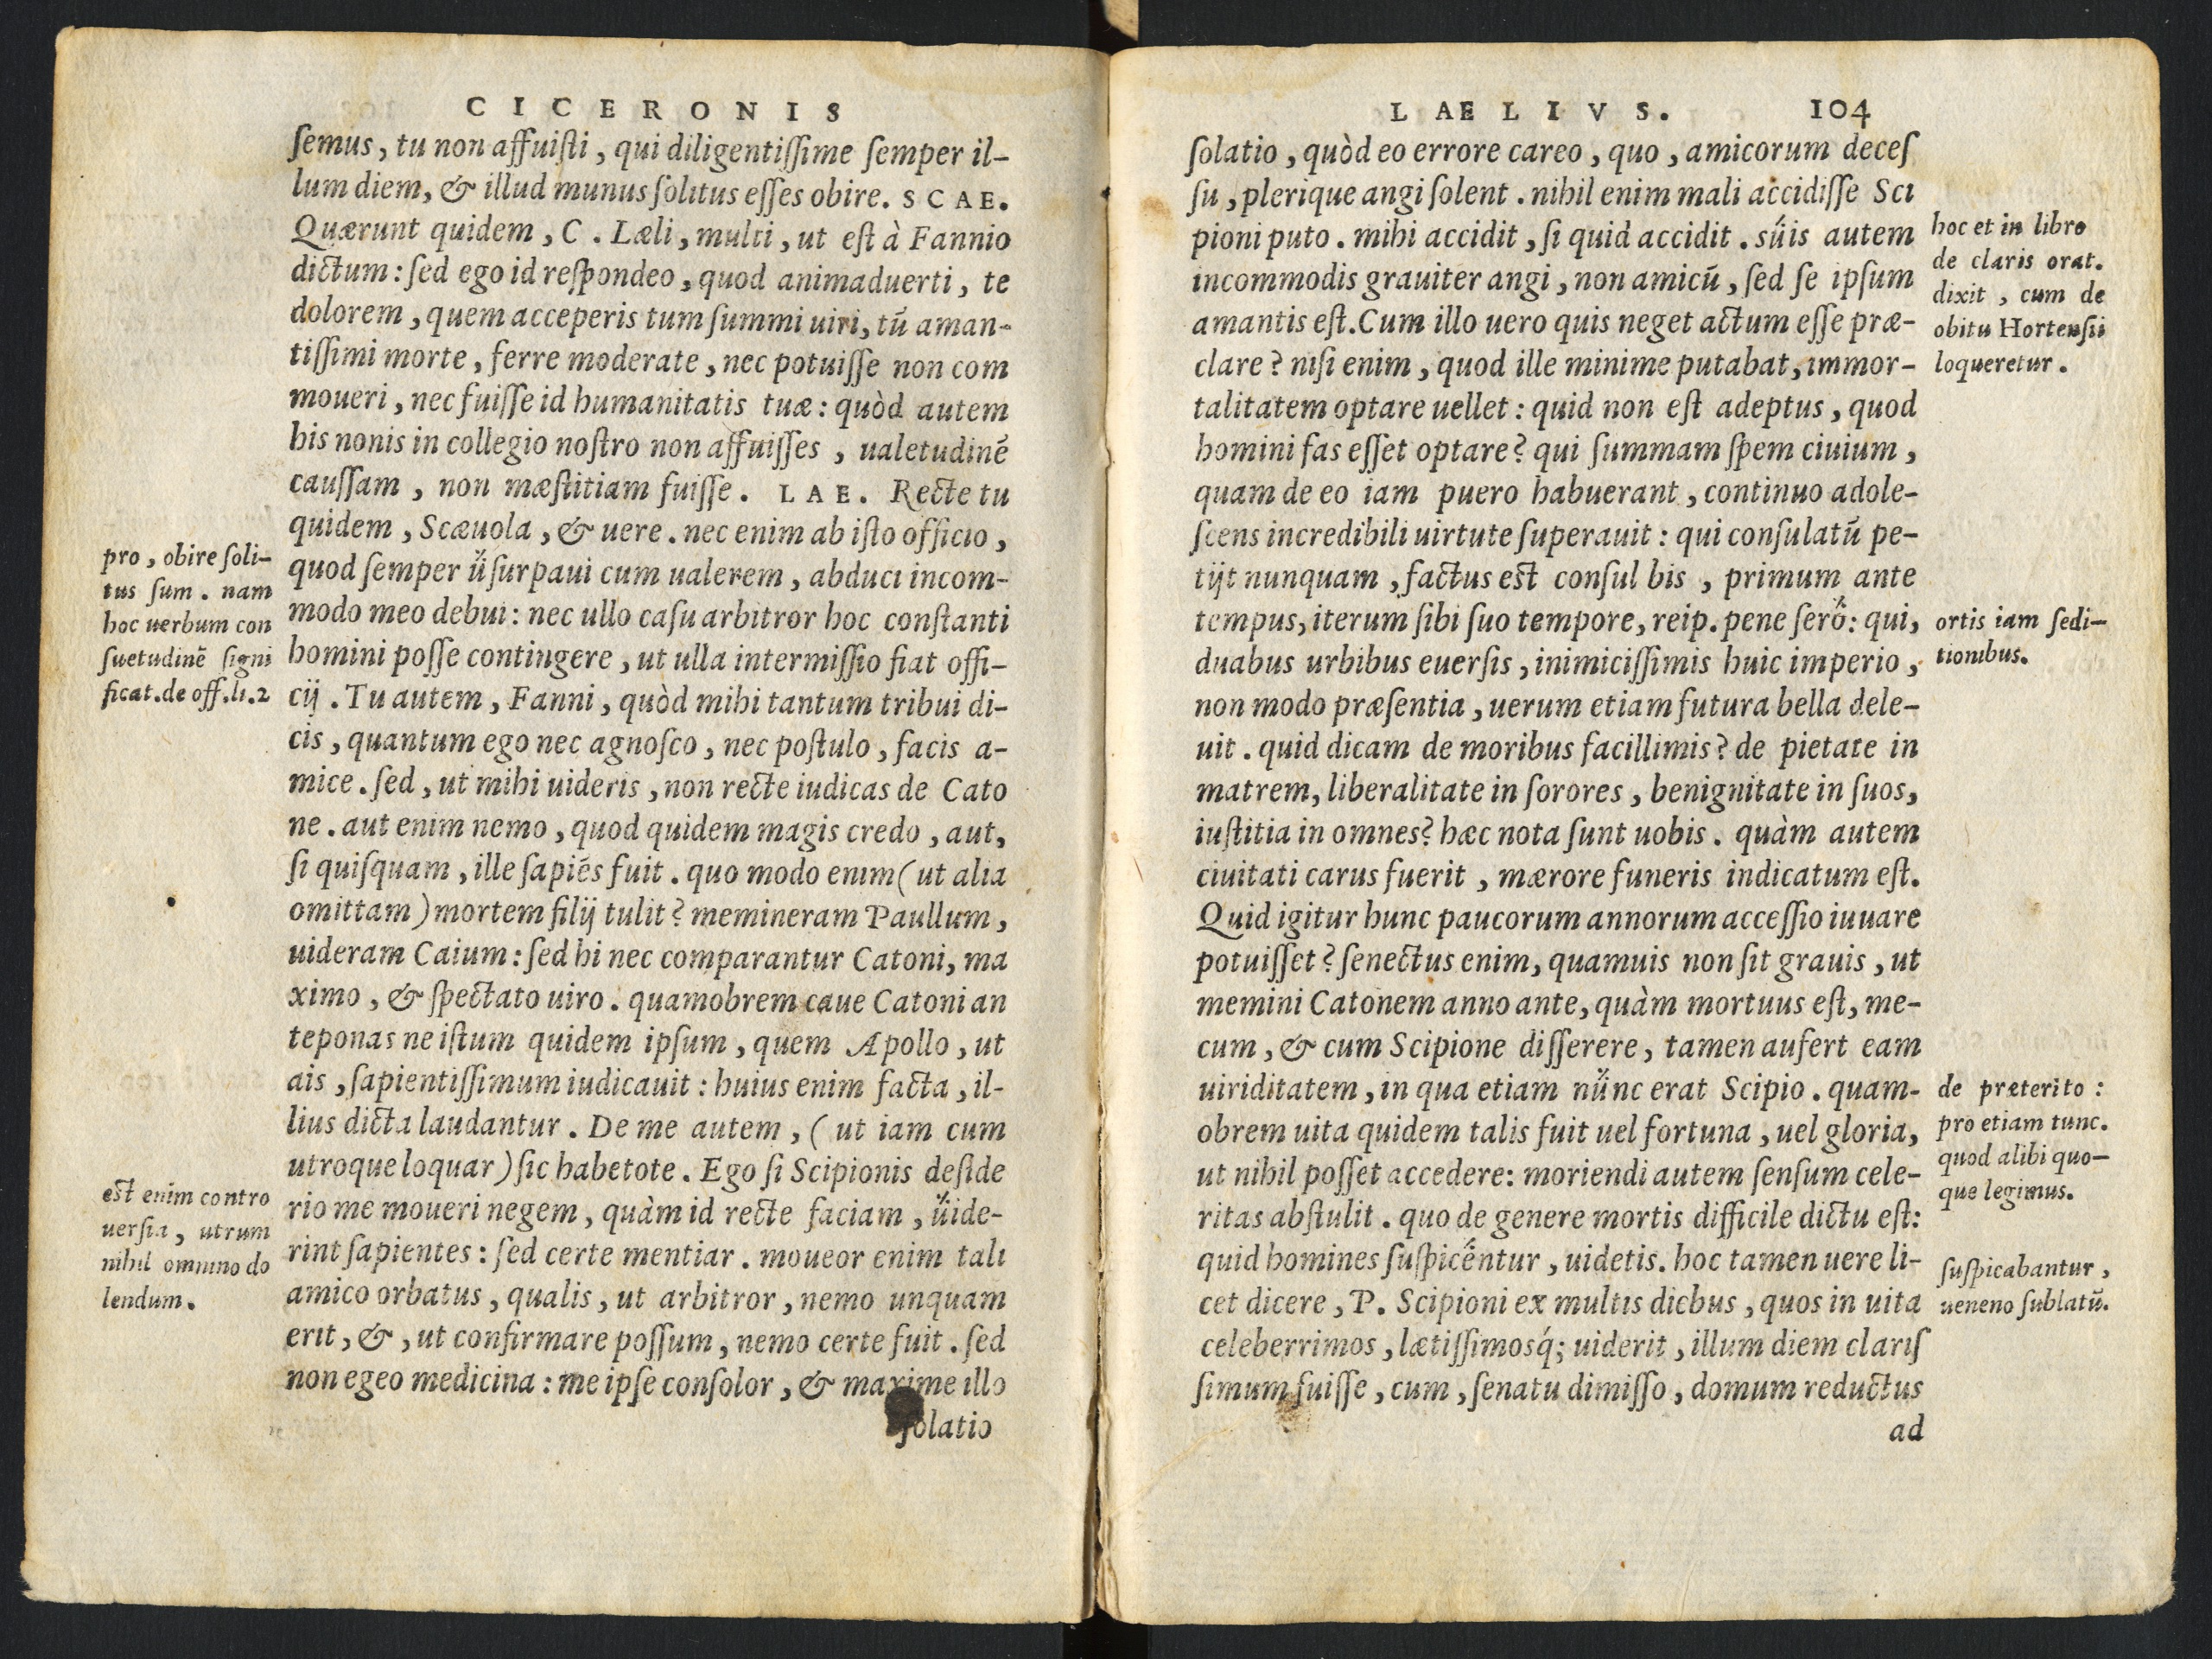 CICERONIS
ſemus, tu non affuiſti, qui diligentiſſime ſemper il-
lum diem, & illud munus ſolitus eſſes obire. SCAE.
Quærunt quidem, C. Læli, multi, ut eſt à Fannio
dictum: ſed ego id reſpondeo, quod animaduerti, te
dolorem, quem acceperis tum ſummi uiri, tū aman-
tiſſimi morte, ferre moderate, nec potuiſſe non com
moueri, nec fuiſſe id humanitatis tuæ: quòd autem
his nonis in collegio noſtro non affuiſſes, ualetudinē
cauſſam, non mæſtitiam fuiſſe. LAE. Recte tu
quidem, Scæuola, & uere. nec enim ab iſto officio,
quod ſemper uſurpaui cum ualerem, abduci incom-
modo meo debui: nec ullo caſu arbitror hoc conſtanti
homini poſſe contingere, ut ulla intermiſſio fiat offi-
cij. Tu autem, Fanni, quòd mihi tantum tribui di-
cis, quantum ego nec agnoſco, nec poſtulo, facis a-
mice. ſed, ut mihi uideris, non recte iudicas de Cato
ne. aut enim nemo, quod quidem magis credo, aut,
ſi quiſquam, ille ſapiēs fuit. quo modo enim (ut alia
omittam) mortem filij tulit? memineram Paullum,
uideram Caium: ſed hi nec comparantur Catoni, ma
ximo, & ſpectato uiro. quamobrem caue Catoni an
teponas ne iſtum quidem ipſum, quem Apollo, ut
ais, ſapientiſſimum iudicauit: huius enim facta, il-
lius dicta laudantur. De me autem, (ut iam cum
utroque loquar) ſic habetote. Ego ſi Scipionis deſide
rio me moueri negem, quàm id recte faciam, uide-
rint ſapientes: ſed certe mentiar. moueor enim tali
amico orbatus, qualis, ut arbitror, nemo unquam
erit, &, ut confirmare poſſum, nemo certe fuit. ſed
non egeo medicina: me ipſe conſolor, & maxime illo
ſolatio
pro, obire ſoli-
tus ſum. nam
hoc uerbum con
ſuetudinē ſigni
ficat. de off. li. 2
eſt enim contro
uerſia, utrum
nihil omnino do
lendum.
LAELIVS. 104
ſolatio, quòd eo errore careo, quo, amicorum deceſ
ſu, plerique angi ſolent. nihil enim mali accidiſſe Sci
pioni puto. mihi accidit, ſi quid accidit. suis autem
incommodis grauiter angi, non amicū, ſed ſe ipſum
amantis eſt. Cum illo uero quis neget actum eſſe præ-
clare? niſi enim, quod ille minime putabat, immor-
talitatem optare uellet: quid non eſt adeptus, quod
homini fas eſſet optare? qui ſummam ſpem ciuium,
quam de eo iam puero habuerant, continuo adole-
ſcens incredibili uirtute ſuperauit: qui conſulatū pe-
tijt nunquam, factus eſt conſul bis, primum ante
tempus, iterum ſibi ſuo tempore, reip. pene ſero: qui,
duabus urbibus euerſis, inimiciſſimis huic imperio,
non modo præſentia, uerum etiam futura bella dele-
uit. quid dicam de moribus facillimis? de pietate in
matrem, liberalitate in ſorores, benignitate in ſuos,
iuſtitia in omnes? hæc nota ſunt uobis. quàm autem
ciuitati carus fuerit, mærore funeris indicatum eſt.
Quid igitur hunc paucorum annorum acceſſio iuuare
potuiſſet? ſenectus enim, quamuis non ſit grauis, ut
memini Catonem anno ante, quàm mortuus eſt, me-
cum, & cum Scipione diſſerere, tamen aufert eam
uiriditatem, in qua etiam nunc erat Scipio. quam-
obrem uita quidem talis fuit uel fortuna, uel gloria,
ut nihil poſſet accedere: moriendi autem ſenſum cele-
ritas abſtulit. quo de genere mortis difficile dictu eſt:
quid homines ſuſpicentur, uidetis. hoc tamen uere li-
cet dicere, P. Scipioni ex multis diebus, quos in uita
celeberrimos, lætiſſimosq́; uiderit, illum diem clariſ
ſimum fuiſſe, cum, ſenatu dimiſſo, domum reductus
ad
hoc et in libro
de claris orat.
dixit, cum de
obitu Hortenſii
loqueretur.
ortis iam ſedi-
tionibus.
de præterito:
pro etiam tunc.
quod alibi quo-
que legimus.
ſuſpicabantur,
ueneno ſublatū.